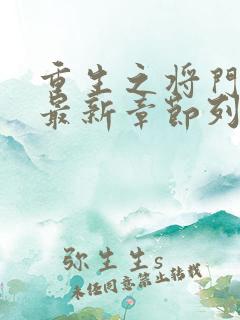 重生之将門
最新章節列
弥生生s
未经同意禁止转载